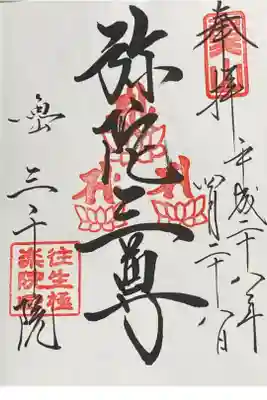 奉拝
平成二十八年
月二十八日
弥陀三尊
魚山
三千院
往生極
楽院